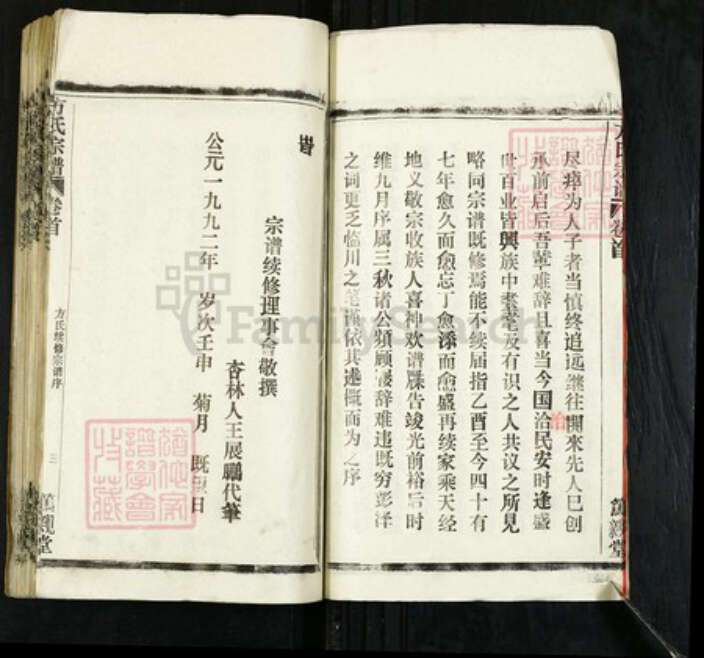 尽瘁为人子者当慎终追远继往開來先人已创
承前启后吾辈难辞且喜当今国治民安时逢盛
世百业皆興族中耄耋及有识之人共议之所見
略同宗谱既修焉能不续屈指乙酉至今四十有
七年愈久而愈忘丁愈添而愈盛再续家乘天经
地义敬宗收族人喜神欢谱牒告竣光前裕后时
维九月序属三秋诸公頻顾屡辞难违既穷彭泽
之词更乏临川之笔谨依其述概而为之序
治
方氏宗谱 卷首
堂
皆
宗谱续修理事會敬撰
杏林人王展鵬代筆
公元一九九二年 岁次壬申 菊月 既望日
方氏宗谱 卷首
方氏续修宗谱序
三
堂
FamilySearch